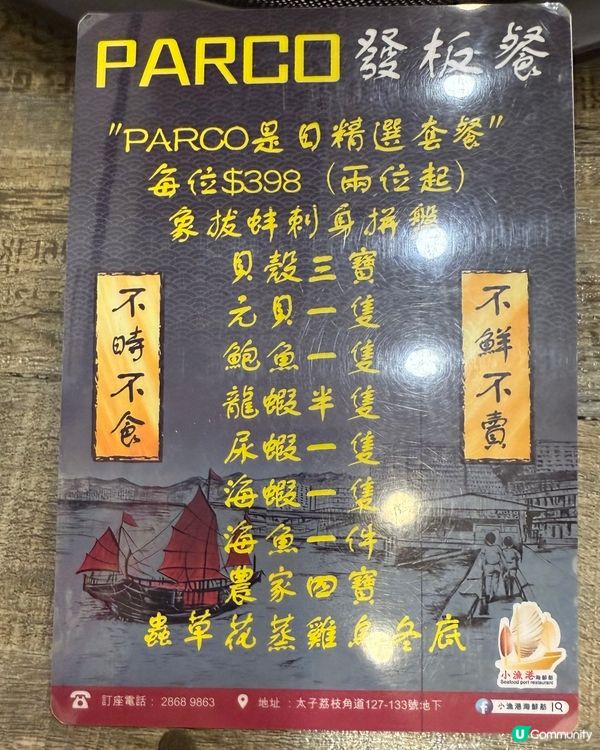 PARCO發板餐
"PARCO是日精選套餐"
每位$398（兩位起）
象拔蚌刺身拼盤
貝殼三寶
元貝一隻
鮑魚一隻
龍蝦半隻
尿蝦一隻
海蝦一隻
海魚一件
農家四寶
蟲草花蒸雞烏冬底
不時不食
不鮮不賣
小漁港海鮮舫
Seafood port restaurant
訂座電話： 2868 9863
地址：太子荔枝角道127-133號地下
小漁港海鮮舫
U Community